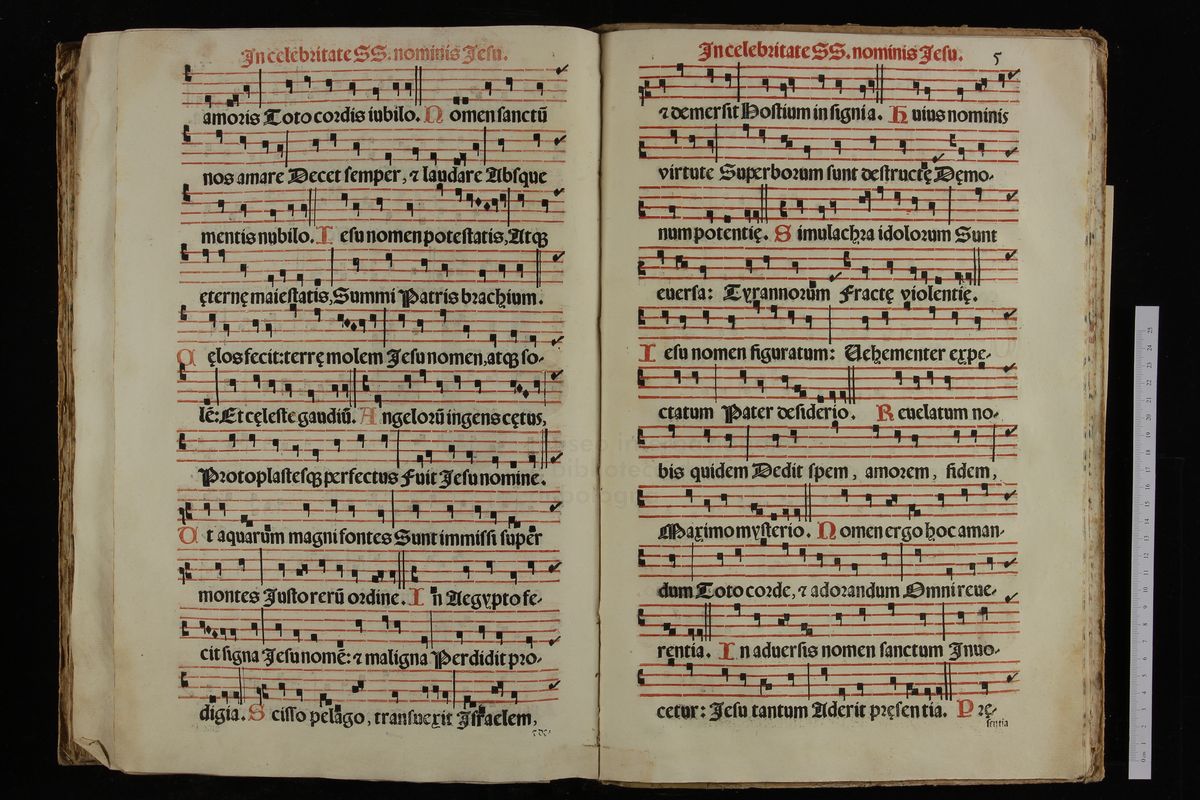 In celebritate SS. nominis Jesu.
amoris Toto cordis iubilo. Nomen sanctũ
nos amare Decet semper, ⁊ laudare Absque
mentis nubilo. Iesu nomen potestatis, Atqꝫ
ęternę maiestatis, Summi Patris brachium.
Cęlos fecit: terrę molem Jesu nomen, atqꝫ so-
lẽ: Et cęleste gaudiũ. Angelorũ ingens cętus,
Protoplastesqꝫ perfectus Fuit Jesu nomine.
Ut aquarum magni fontes Sunt immissi super
montes Justo rerũ ordine. In Aegypto fe-
cit signa Jesu nomẽ: ⁊ maligna Perdidit pro-
digia. Scisso pelago, transuexit Israelem,
In celebritate SS. nominis Jesu. 5
⁊ demersit Hostium insignia. Huius nominis
virtute Superborum sunt destructę Dęmo-
num potentię. Simulachra idolorum Sunt
euersa: Tyrannorum Fractę violentię.
Iesu nomen figuratum: Uehementer expe-
ctatum Pater desiderio. Reuelatum no-
bis quidem Dedit spem, amorem, fidem,
Maximo mysterio. Nomen ergo hoc aman-
dum Toto corde, ⁊ adorandum Omni reue-
rentia. In aduersis nomen sanctum Inuo-
cetur: Jesu tantum Aderit pręsentia. Prę-
sentia